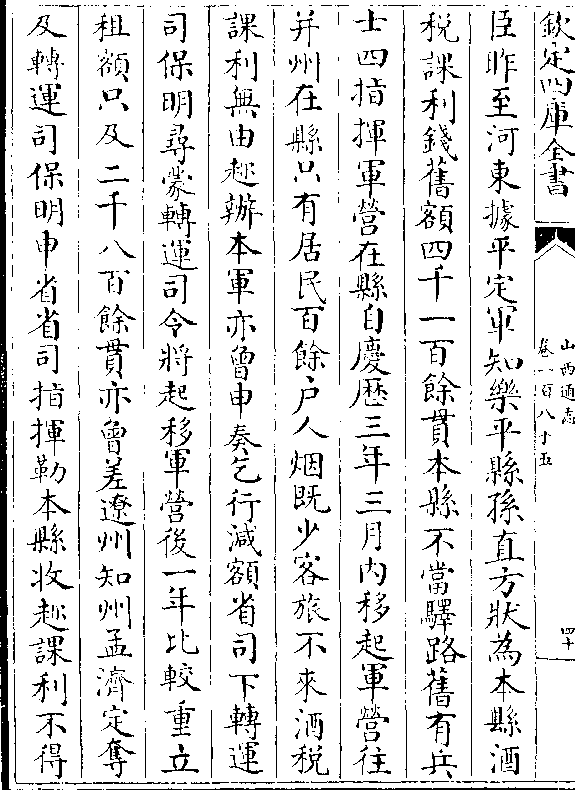 欽定四庫全書
山西通志
卷一百八十五
四十
臣昨至河東據平定軍知樂平縣孫直方狀為本縣酒
稅課利錢舊額四千一百餘貫本縣不當驛路舊有兵
士四指揮軍營在縣自慶歷三年三月內移起軍營往
并州在縣只有居民百餘户人烟既少客旅不來酒税
課利無由趂辦本軍亦曾申奏乞行減額省司下轉運
司保明尋蒙轉運司令將起移軍營後一年比較重立
租額只及二千八百餘貫亦曾差遼州知州孟濟定奪
及轉運司保明申省省司指揮勒本縣收趂課利不得